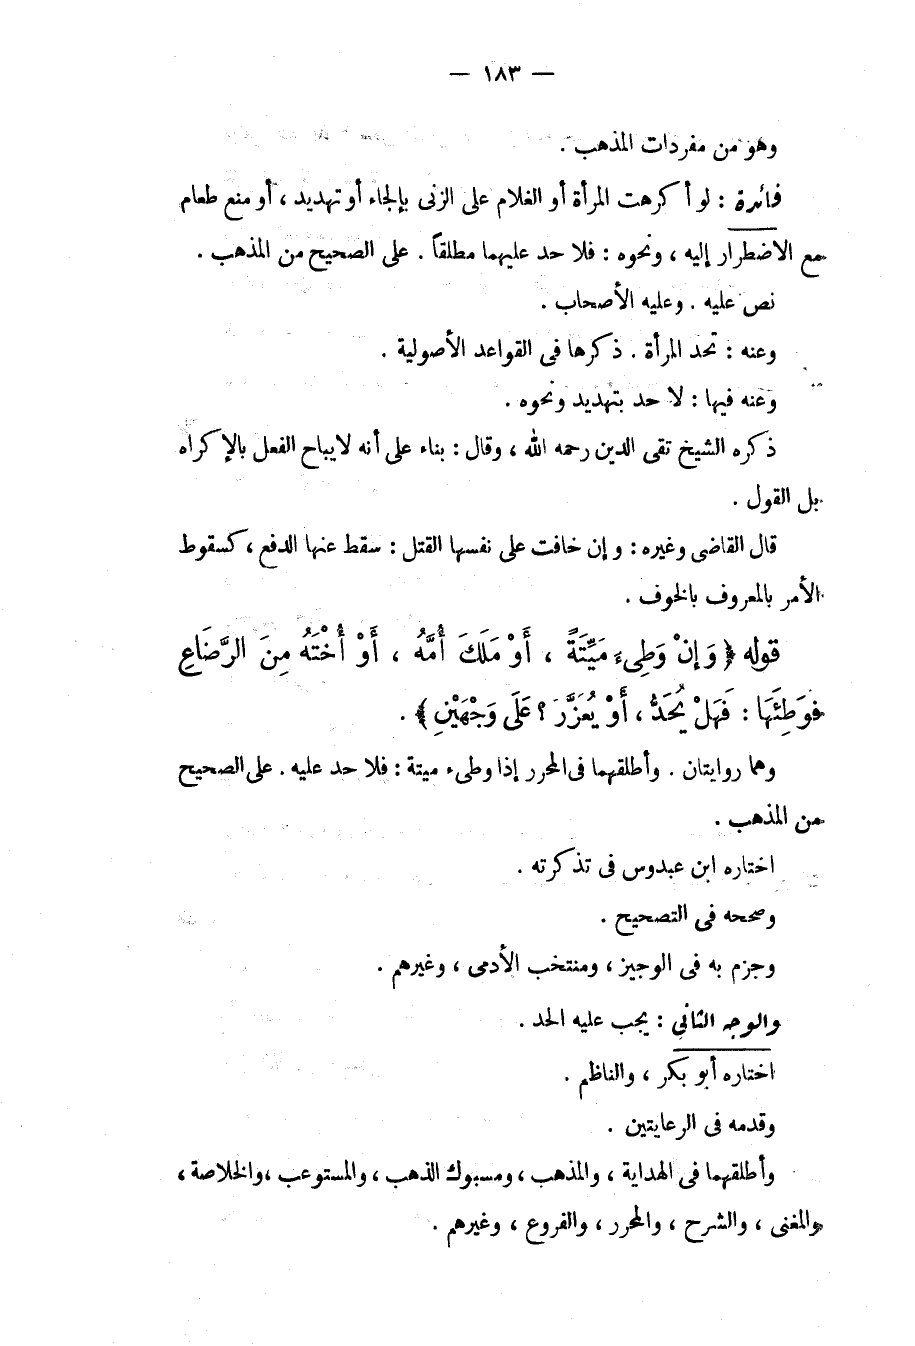 — ١٨٣ —
وهو من مفردات المذهب .
فائدة : لو أكرهت المرأة أو الغلام على الزنى بإلجاء أو تهديد ، أو منع طعام
مع الاضطرار إليه ، ونحوه : فلا حد عليهما مطلقاً . على الصحيح من المذهب .
نص عليه . وعليه الأصحاب .
وعنه : تحد المرأة . ذكرها فى القواعد الأصولية .
وعنه فيها : لا حد بتهديد ونحوه .
ذكره الشيخ تقى الدين رحمه الله ، وقال : بناء على أنه لايباح الفعل بالإكراه
بل القول .
قال القاضى وغيره : وإن خافت على نفسها القتل : سقط عنها الدفع ، كسقوط
الأمر بالمعروف بالخوف .
قوله ﴿ وَإِنْ وَطِىءَ مَيِّتَةً ، أَوْ مَلَكَ أُمَّهُ ، أَوْ أُخْتَهُ مِنَ الرَّضَاعِ
فَوَطِئَهَا : فَهَلْ يُحَدُّ ، أَوْ يُعَزَّرَ ؟ عَلَى وَجْهَيْنِ ﴾ .
وهما روايتان . وأطلقهما فى المحرر إذا وطىء ميتة : فلا حد عليه . على الصحيح
من المذهب .
اختاره ابن عبدوس فى تذكرته .
وصححه فى التصحيح .
وجزم به فى الوجيز ، ومنتخب الأدمى ، وغيرهم .
والوجه الثانى : يجب عليه الحد .
اختاره أبو بكر ، والناظم .
وقدمه فى الرعايتين .
وأطلقهما فى الهداية ، والمذهب ، ومسبوك الذهب ، والمستوعب ، والخلاصة ،
والمغنى ، والشرح ، والمحرر ، والفروع ، وغيرهم .